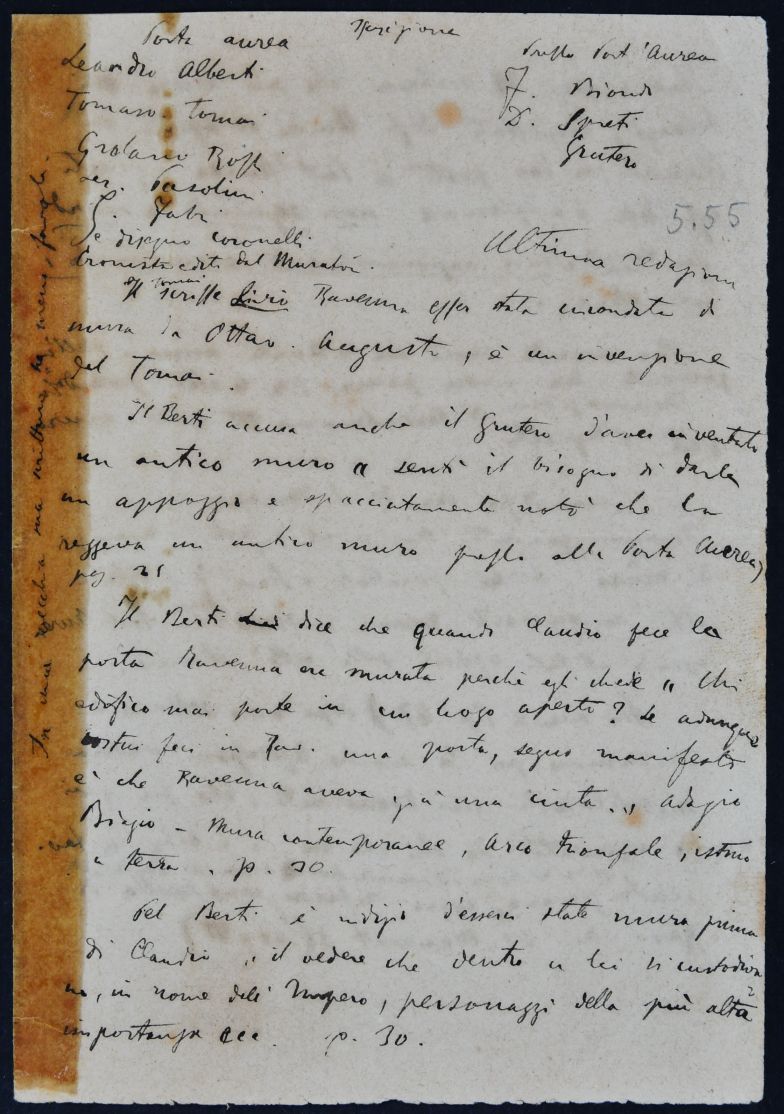 Porta aurea
Iscrizione
Leandro Alberti
Tomaso Tomai
Girolamo Rossi
Ser. Pasolini
G. Fabri
Se disegno coronelli
Cronista editi dal Muratori.
Presso Port'Aurea
F. Biondo
D. Spreti
Grutero
5.55
Ultima redazione
Il Tomai scrisse Livio Ravenna esser stata circondata di
mura da Ottav. Augusto, è un invenzione
del Tomai.
Il Berti accusa anche il Grutero d'aver inventato
un antico muro " sentì il bisogno di darla
un appoggio e spacciatamente notò che la
reggeva un antico muro presso alla Porta Aurea,
pag. 21
Il Berti dice che quando Claudio fece la
porta Ravenna era murata perchè egli chiede " Chi
edificò mai porte in un luogo aperto? Se adunque
costui fece in Rav. una porta, segno manifesto
è che Ravenna aveva già una cinta " adagio
Biagio - Mura contemporanee, Arco trionfale, istmo
a terra. p. 30.
Pel Berti è indizio d'esserci state mura prima
di Claudio " il vedere che dentro a lei si custodiva
no, in nome dell'Impero, personaggi della più alta
importanza ecc. p. 30.
In una vecchia mia scrittura ho